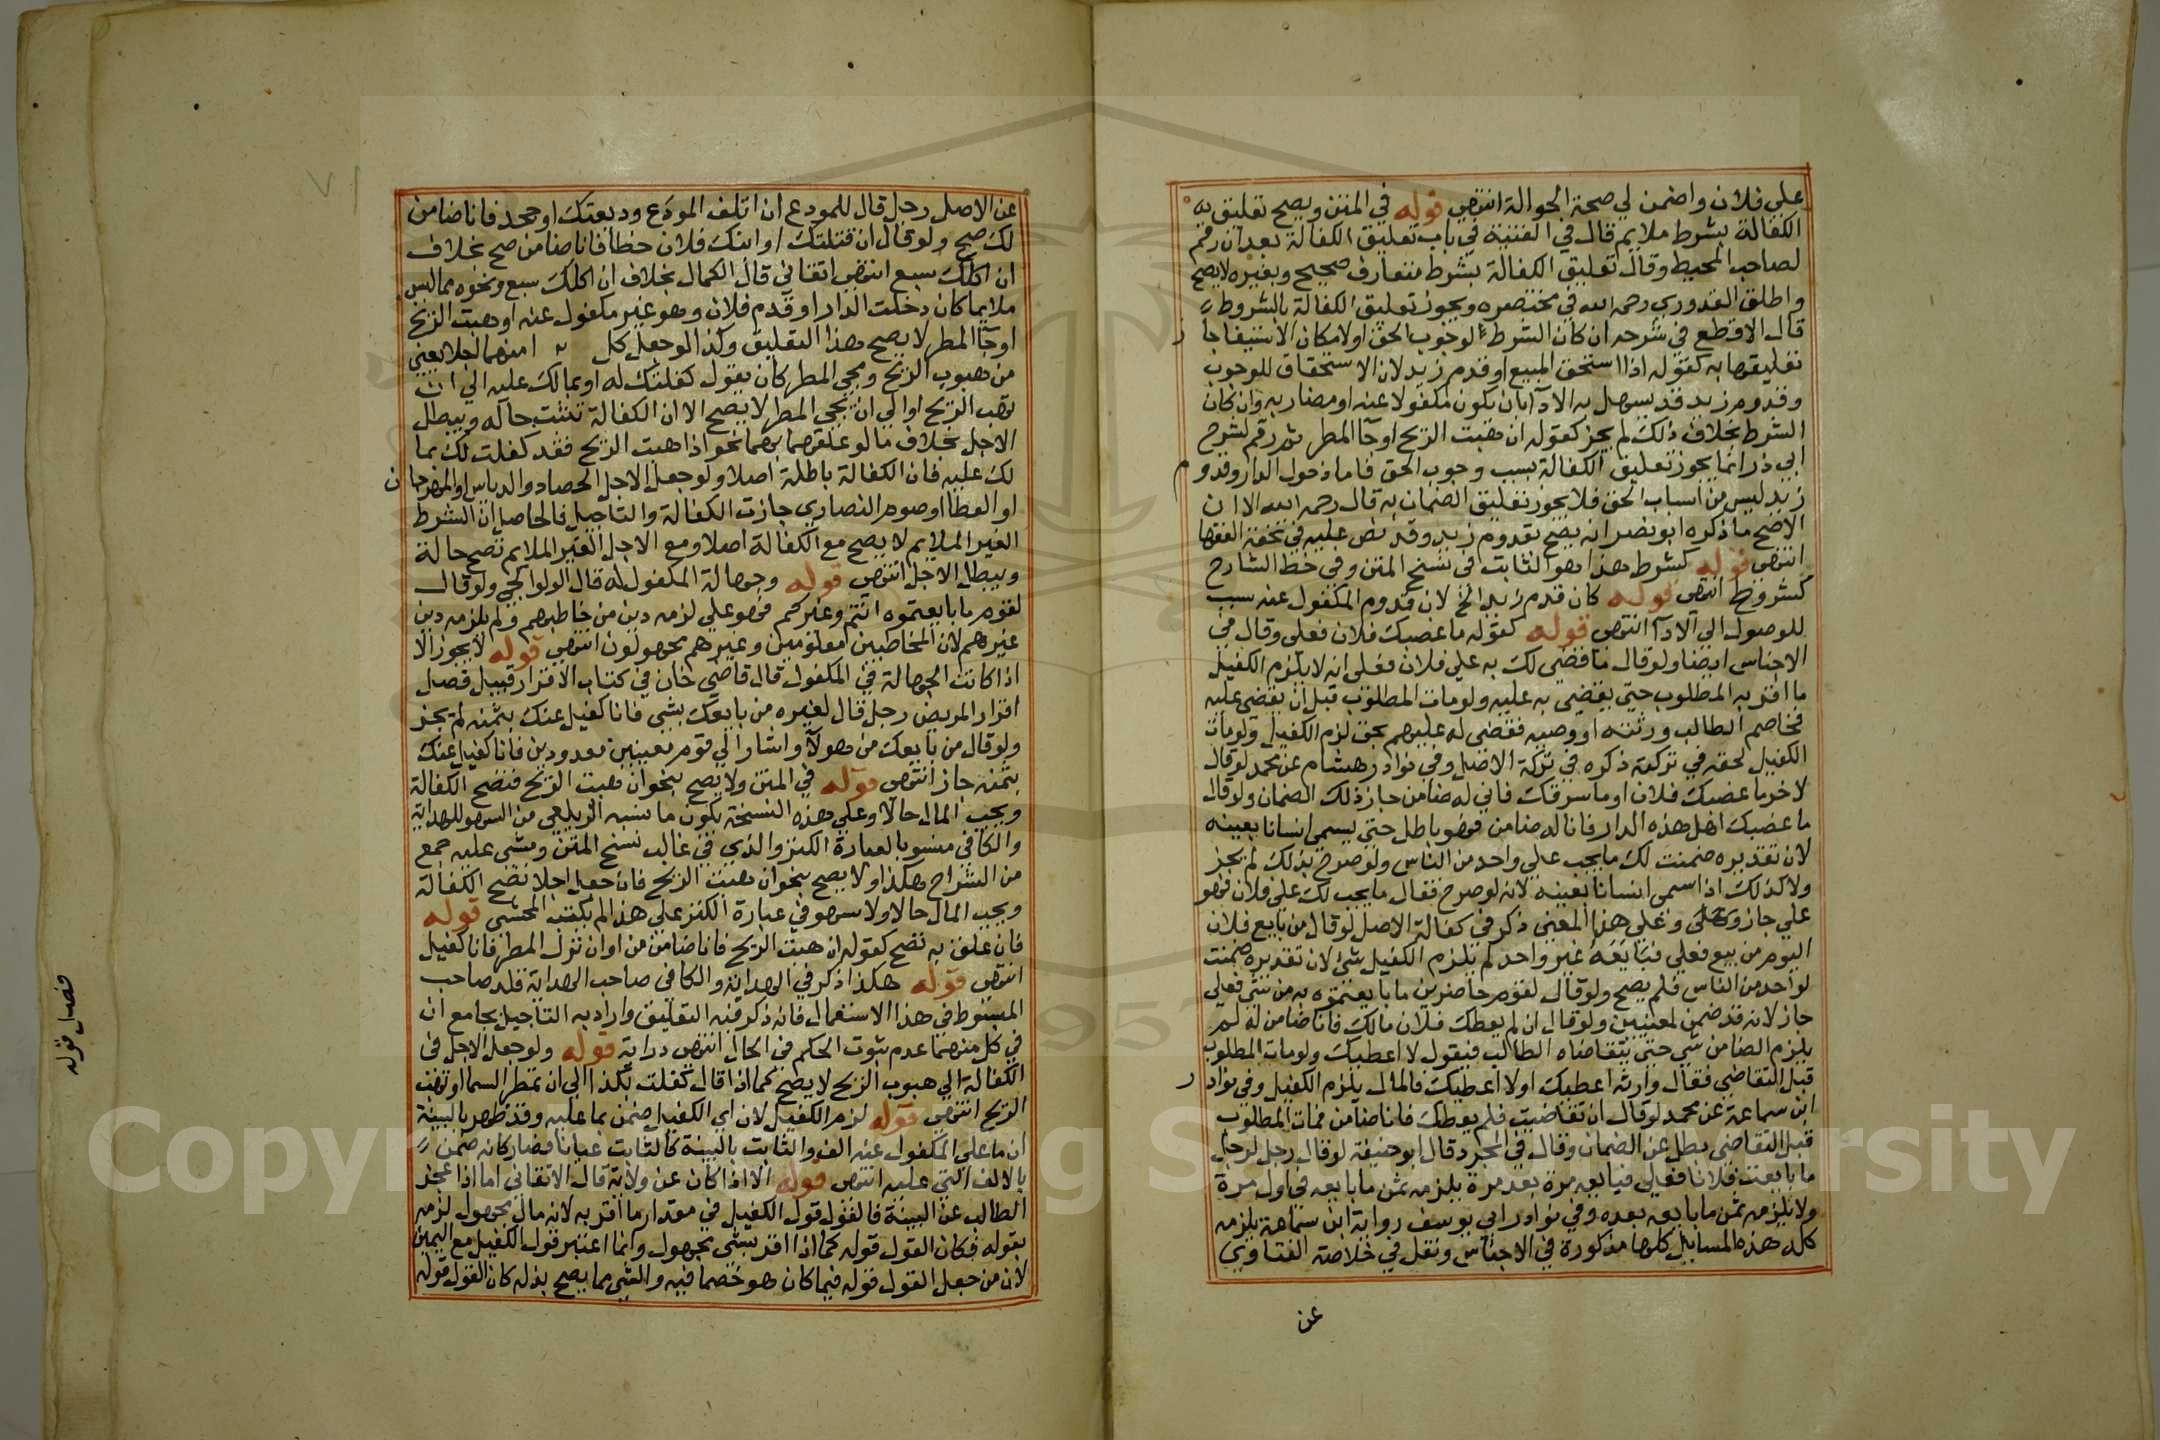 علي فلان واضمن لي صحة الحوالة انتهى قوله في المتن ويصح تعليق به
الكفالة بشرط ملايم قال في القنية في باب تعليق الكفالة بعد ان رقم
لصاحب المحيط وقال تعليق الكفالة بشرط متعارف صحيح وبغيره لا يصح
واطلق القدوري رحمه الله في مختصره ويجوز تعليق الكفالة بالشروط
قال الاقطع في شرحه ان كان الشرط لوجوب الحق او لامكان الاستيفا جا ز
تعليقها به كقوله اذا استحق المبيع او قدم زيد لان الاستحقاق للوجوب
وقدوم زيد قد يسهل به الادآ بان يكون مكفولا عنه او مضاربه وان كان
الشرط بخلاف ذلك لم يجز كقوله ان هبت الريح او جآ المطر ثم رقم لشرح
ابي ذر انما يجوز تعليق الكفالة بسبب وجوب الحق فاما دخول الدار وقدو م
زيد ليس من اسباب الحق فلا يجوز تعليق الضمان به قال رحمه الله الا ان
الاصح ما ذكره ابو نصر انه يصح بقدوم زيد وقد نص عليه في تحفة الفقها
انتهى قوله كشرط هذا هو الثابت في نسخ المتن وفي خط الشارح
كشروط انتهى قوله كان قدم زيد الخ لان قدوم المكفول عنه سبب
للوصول الي الادآ انتهى قوله كقوله ما غصبك فلان فعلى وقال في
الاجناس ايضا ولو قال ما قضى لك به علي فلان فعلى انه لا يلزم الكفيل
ما اقر به المطلوب حتى يقضي به عليه ولو مات المطلوب قبل ان يقضى عليه
فخاصم الطالب ورثته او وصيه فقضى له عليهم بحق لزم الكفيل ولو مات
الكفيل لحقه في تركته ذكره في تركة الاصل وفي نوادر هشام عن محمد لو قال
لاخر ما غصبك فلان او ما سرقك فاني له ضامن جاز ذلك الضمان ولو قال
ما غصبك اهل هذه الدار فانا له ضامن فهو باطل حتى يسمي انسانا بعينه
لان تقديره ضمنت لك ما يجب علي واحد من الناس ولو صرح بذلك لم يجز
ولا كذلك اذا سمى انسانا بعينه لانه لو صرح فقال ما يجب لك علي فلان فهو
علي جاز وعلى هذا المعنى ذكر في كفالة الاصل لو قال من بايع فلان
اليوم من بيع فعلي فبايعه غير واحد لم يلزم الكفيل شئ لان تقديره ضمنت
لواحد من الناس فلم يصح ولو قال لقوم حاضرين ما بايعتموه به من شئ فعلي
جاز لانه قد ضمن لمعينين ولو قال ان لم يعطك فلان مالك فانا ضامن له لم
يلزم الضامن شي حتى يتقاضاه الطالب فيقول لا اعطيك ولو مات المطلوب
قبل التقاضي فقال وارثه اعطيك او لا اعطيك فالمال يلزم الكفيل وفي نواد ر
ابن سماعة عن محمد لو قال ان تقاضيت فلم يعطك فانا ضامن فمات المطلوب
قبل التقاضى بطل عن الضمان وقال في المجرد قال ابو حنيفة لو قال رجل لرجل
ما بايعت فلانا فعلي فبايعه مرة بعد مرة يلزمه ثمن ما بايعه في اول مرة
ولا يلزمه ثمن ما بايعه بعده وفي نوادر ابي يوسف رواية ابن سماعة يلزمه
كله هذه المسايل كلها مذكورة في الاجناس ونقل في خلاصة الفتاوي
عن
عن الاصل رجل قال للمودع ان اتلف المودَع وديعتك او جحد فانا ضامن
لك صح ولو قال ان قتلتك او ابنك فلان خطأ فانا ضامن صح بخلاف
ان اكلك سبع انتهى اتقاني قال الكمال بخلاف ان اكلك سبع ونحوه مما ليس
ملايما كان دخلت الدار او قدم فلان وهو غير مكفول عنه او هبت الريح
او جآ المطر لا يصح هذا التعليق وكذا لو جعل كل امنهما اجلا يعني
من هبوب الريح ومجي المطر كان يقول كفلتك له او بمالك عليه الي ان
تهب الريح او الي ان يجي المطر لا يصح الا ان الكفالة تثبت حالة ويبطل
الاجل بخلاف ما لو علقهما بهما نحو اذا هبت الريح فقد كفلت لك بما
لك عليه فان الكفالة باطلة اصلا ولو جعل الاجل الحصاد والدياس او المهرجا ن
او العطا او صوم النصارى جازت الكفالة والتاجيل فالحاصل ان الشرط
الغير الملايم لا يصح مع الكفالة اصلا ومع الاجل الغير الملايم تصح حالة
ويبطل الاجل انتهى قوله وجهالة المكفول له قال الولوالجي ولو قال
لقوم ما بايعتموه انتم وغيركم فهو علي لزمه دين من خاطبهم ولم يلزمه دين
غيرهم لان المخاطبين معلومين وغيرهم مجهولون انتهى قوله لا يجوز الا
اذا كانت الجهالة في المكفول قال قاضي خان في كتاب الاقرار قبيل فصل
اقرار المريض رجل قال لغيره من بايعك بشي فانا كفيل عنك بثمنه لم يجز
ولو قال من بايعك من هولآ واشار الي قوم معينين معدودين فانا كفيل عنك
بثمنه جاز انتهى قوله في المتن ولا يصح بنحو ان هبت الريح فتصح الكفالة
ويجب المال حالا وعلي هذه النسخة يكون ما نسبه الزيلعي من السهو للهداية
والكافي منسوبا لعبارة الكنز والذي في غالب نسخ المتن ومشى عليه جمع
من الشراح هكذا ولا يصح بنحو ان هبت الريح فان جعل اجلا تصح الكفالة
ويجب المال حالا ولا سهو في عبارة الكنز على هذا لم يكتب المحشى قوله
فان علق به تصح كقوله ان هبت الريح فانا ضامن من او ان نزل المطر فانا كفيل
انتهى قوله هكذا ذكر في الهداية والكافي صاحب الهداية قلد صاحب
المبسوط في هذا الاستعمال فانه ذكر فيه التعليق واراد به التاجيل بجامع ان
في كل منهما عدم ثبوت الحكم في الحال انتهى دراية قوله ولو جعل الاجل في
الكفالة الي هبوب الريح لا يصح كما اذا قال كفلت بكذا الي ان تمطر السما او تهب
الريح انتهى قوله لزم الكفيل لان اي الكفيل ضمن بما عليه وقد ظهر بالبينة
ان ما علي المكفول عنه الف والثابت بالبينة كالثابت عيانا فصار كانه ضمن
بالالف التي عليه انتهى قوله الا اذا كان عن ولاية قال الاتقاني اما اذا عجز
الطالب عن البينة فالقول قول الكفيل في مقدار ما اقر به لانه مال مجهول لزمه
بقوله فكان القول قوله كما اذا اقر بشى مجهول وانما اعتبر قول الكفيل مع اليمين
لان من جعل القول قوله فيما كان هو خصما فيه والشى مما يصح بذله كان القول قوله
فصل قوله
Copyright © King Saud University